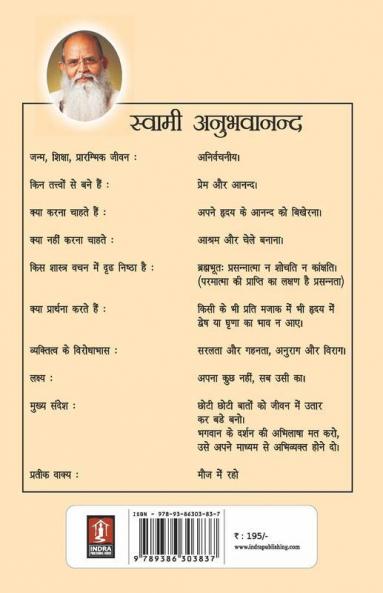 स्वामी अनुभवानन्द
जन्म, शिक्षा, प्रारम्भिक जीवन : अनिर्वचनीय।
किन तत्त्वों से बने हैं : प्रेम और आनन्द।
क्या करना चाहते हैं : अपने हृदय के आनन्द को बिखेरना।
क्या नहीं करना चाहते : आश्रम और चेले बनाना।
किस शास्त्र वचन में दृढ निष्ठा है : ब्रह्मभूतः प्रसन्नात्मा न शोचति न कांक्षति।
(परमात्मा की प्राप्ति का लक्षण है प्रसन्नता)
क्या प्रार्थना करते हैं : किसी के भी प्रति मजाक में भी हृदय में
द्वेष या घृणा का भाव न आए।
व्यक्तित्व के विरोधाभास : सरलता और गहनता, अनुराग और विराग।
लक्ष्य : अपना कुछ नहीं, सब उसी का।
मुख्य संदेश : छोटी छोटी बातों को जीवन में उतार
कर बडे बनो।
भगवान के दर्शन की अभिलाषा मत करो,
उसे अपने माध्यम से अभिव्यक्त होने दो।
प्रतीक वाक्य : मौज में रहो
INDRA
PUBLISHING HOUSE
ISBN - 978-93-86303-83-7
9 789386 303837
₹ : 195/-
www.indrapublishing.com